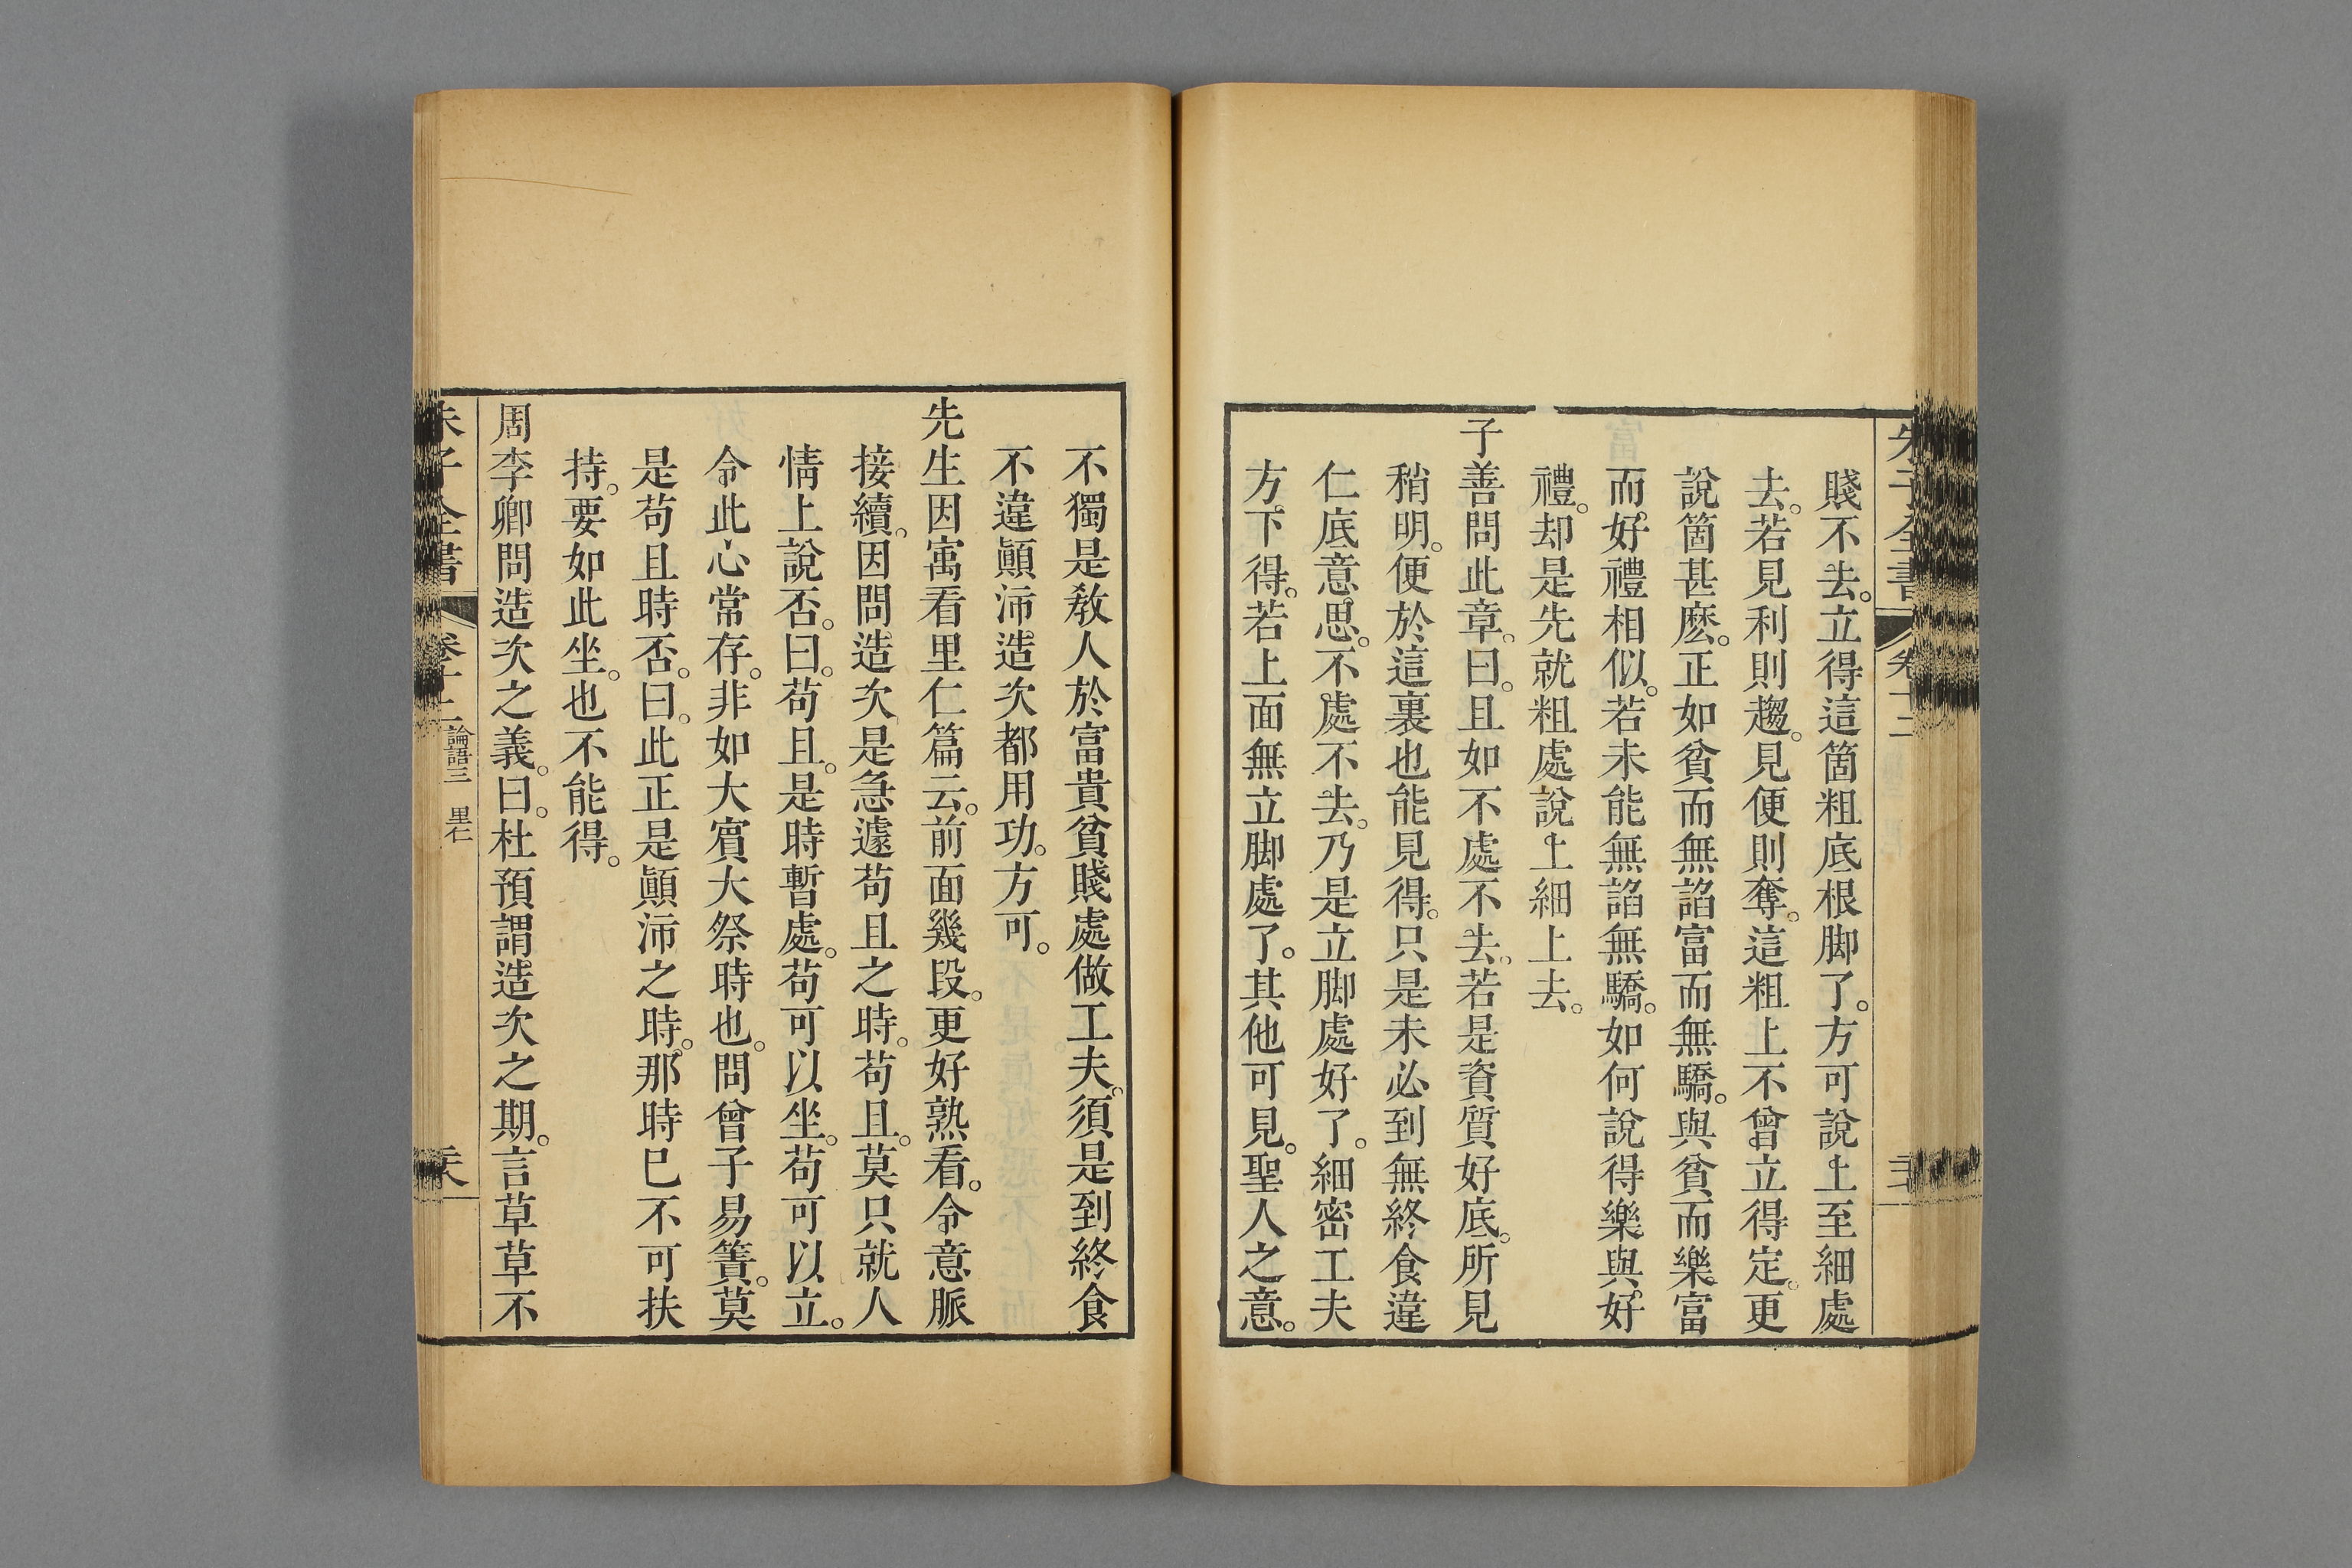 朱子全書 卷十二
賤不去。立得這箇粗底根脚了。方可說上至細處
去。若見利則趨。見便則奪。這粗上不曾立得定。更
說箇甚麽。正如貧而無諂富而無驕。與貧而樂富
而好禮相似。若未能無諂無驕。如何說得樂與好
禮。却是先就粗處說上細上去。
子善問此章。曰。且如不處不去。若是資質好底。所見
稍明。便於這裏也能見得。只是未必到無終食違
仁底意思。不處不去。乃是立脚處好了。細密工夫
方下得。若上面無立脚處了。其他可見。聖人之意。
不獨是敎人於富貴貧賤處做工夫。須是到終食
不違顚沛造次都用功。方可。
先生因寓看里仁篇云。前面幾段。更好熟看。令意脈
接續。因問造次是急遽苟且之時。苟且。莫只就人
情上說否。曰。苟且。是時暫處。苟可以坐。苟可以立。
令此心常存。非如大賓大祭時也。問曾子易簀。莫
是苟且時否。曰。此正是顚沛之時。那時已不可扶
持。要如此坐。也不能得。
周李卿問造次之義。曰。杜預謂造次之期。言草草不
朱子全書 卷十二 論語三 里仁